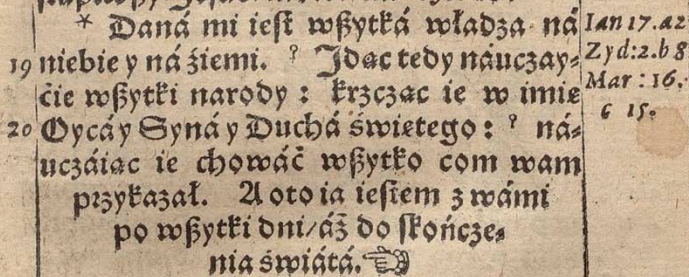 * Daná mi iest wßytká władza ná
19 niebie y ná źiemi. ? Idac tedy náuczay-
ćie wßytki narody : krzcząc ie w imię
20 Oycá y Syná y Duchá świętego : ? ná-
uczáiąc ie chowáć wßytko com wam
przykazał. A oto ia iestem z wámi
po wßytki dni/ áż do skończe-
nia świátá.
Ian 17. a 2
Zyd: 2. b 8
Mar : 16.
c 15.